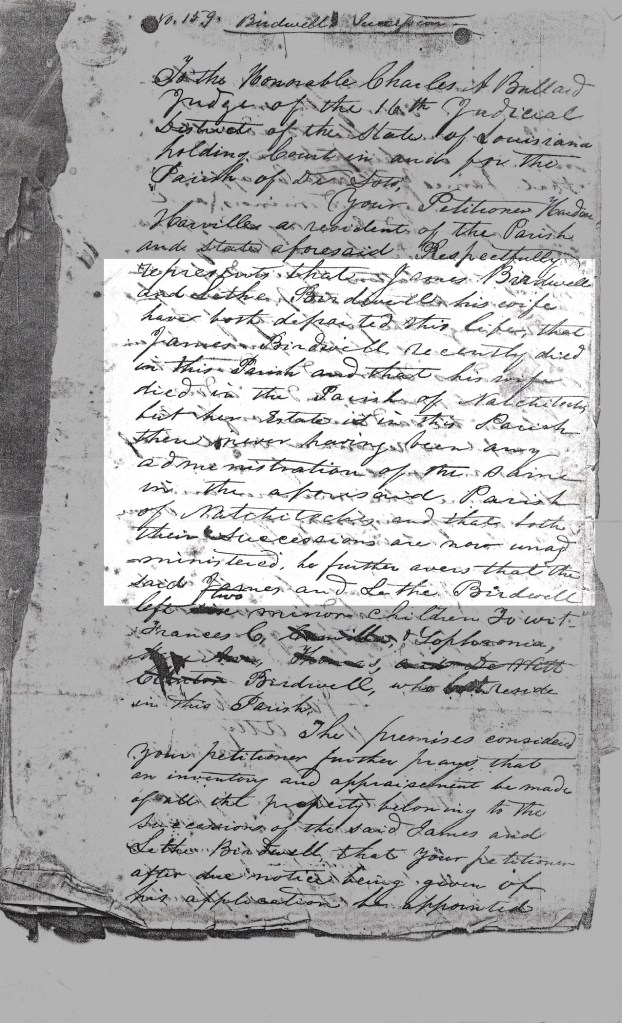 No. 159. Birdwell's Succession
To the Honorable Charles A Bullard
Judge of the 16th Judicial
District of the State of Louisiana
holding Court in and for the
Parish of De Soto,
Your Petitioner
Harville a resident of the Parish
and State aforesaid Respectfully
represents that James Birdwell
and Letha Birdwell his wife
have both departed this life, that
James Birdwell recently died
in this Parish and that his wife
died in the Parish of Natchitoches
but her Estate is in this Parish
there never having been any
administration of the same
in the aforesaid Parish
of Natchitoches and that both
their Successions are now unad
ministered, he further avers that the
said James and Letha Birdwell
left two minor children To wit.
Frances C, Sophronia,
Birdwell, who reside
in this Parish.
The premises considered
your petitioner further prays that
an inventory and appraisement be made
of all the property beloning to the
successions of the said James and
Letha Birdwell that your petitioner
after due notice being given of
his application be appointed